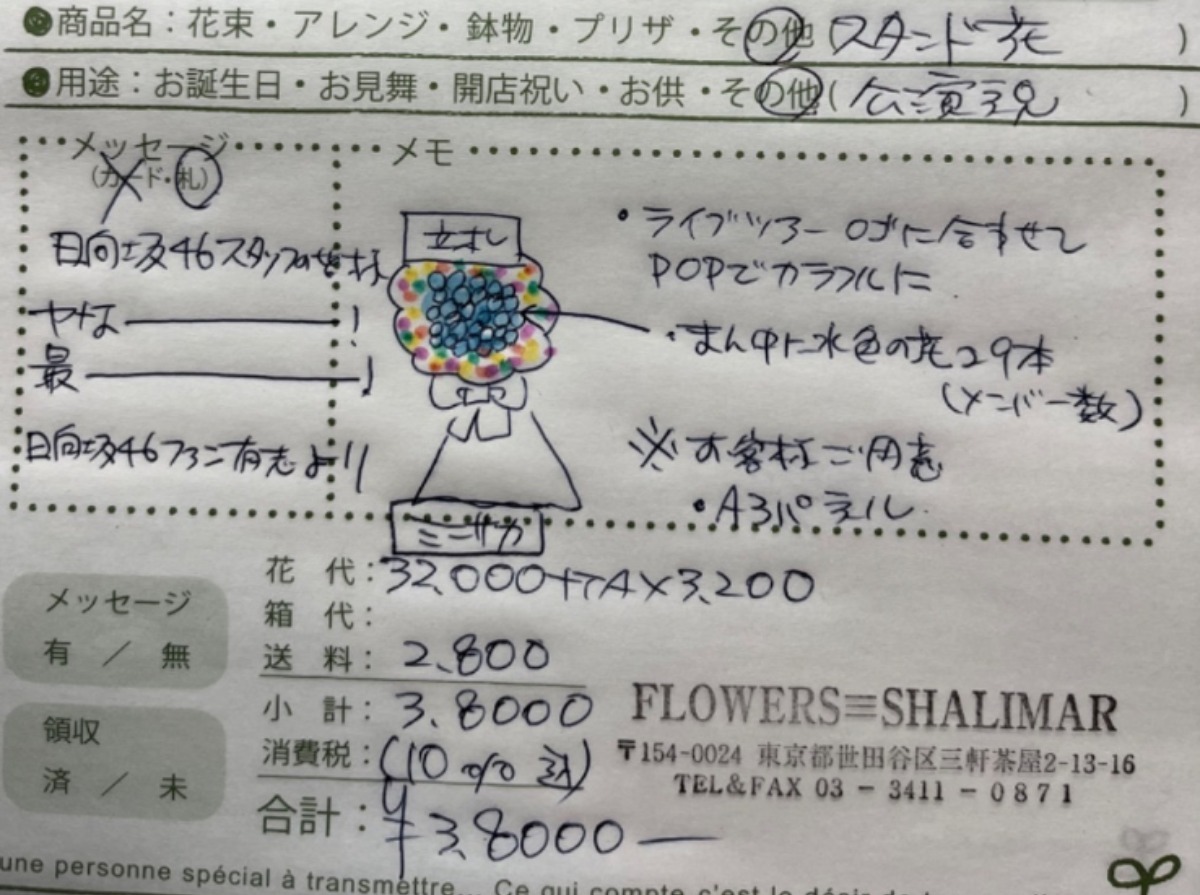 ●商品名：花束・アレンジ・鉢物・プリザ・その他(スタンド花)
●用途：お誕生日・お見舞・開店祝い・お供・その他(公演祝)
メッセージ
(カード・札)
日向坂46スタッフの皆様
ヤな――!
最――!
日向坂46ファン有志より
メモ
立札
ミーザカ
・ライブツアーロゴに合わせて
POPでカラフルに
・まん中に水色の花29本
(メンバー数)
※お客様ご用意
・A3パネル
メッセージ
有 ／ 無
領収
済 ／ 未
花 代：32.000+TAX3.200
箱 代：
送 料：2.800
小 計：3.8000
消費税：(10%込)
合計：¥3.8000―
FLOWERS≡SHALIMAR
〒154-0024 東京都世田谷区三軒茶屋2-13-16
TEL&FAX 03－3411－0871
une personne spécial à transmettre... Ce qui compte c'est le désir de